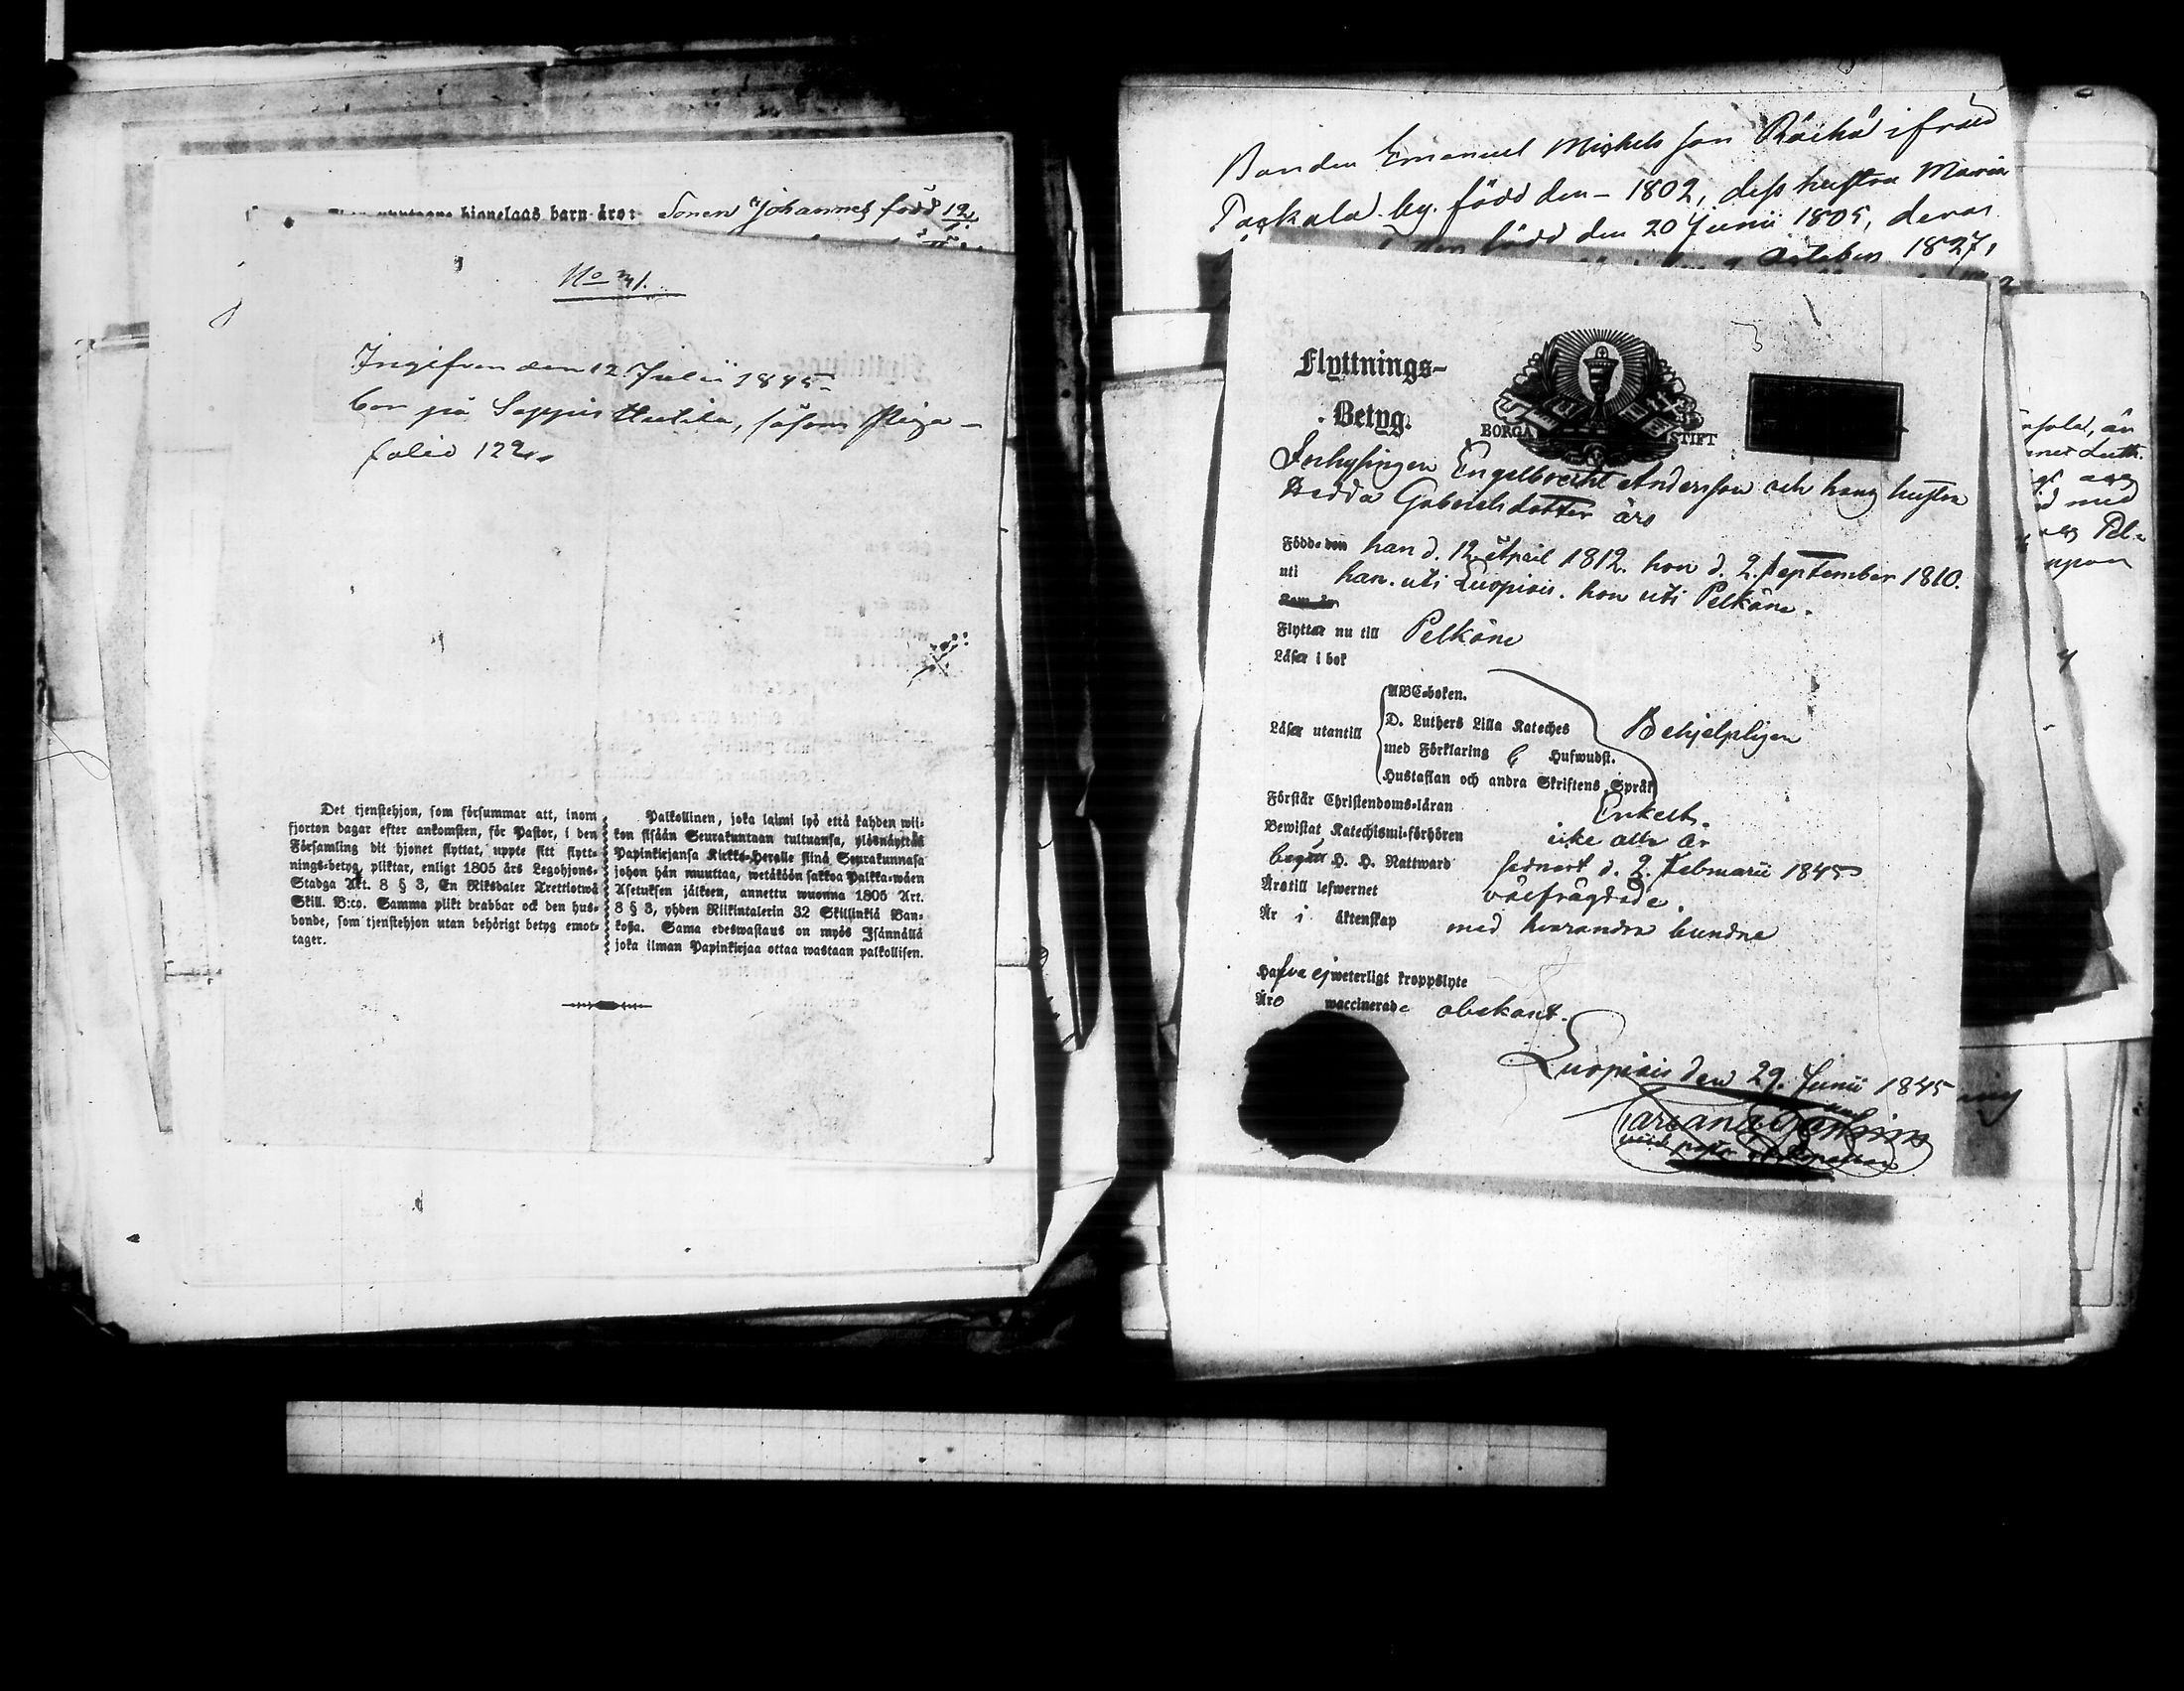 hjonelags barn äro: Sonen Johannes född 12/7
No 41.
Ingifven den 12 Julii 1845
bor på Sappis Uutila, såsom Piga
folio 122
Det tjenstehjon, som försummar att, inom
fjorton dagar efter ankomsten, för Pastor, i den
Församling dit hjonet flyttat, uppte sitt flytt-
nings-betyg, pliktar, enligt 1805 års Legohjons-
Stadga Art. 8 § 3, En Riksdaler Trettiotwå
Skill. B:co. Samma plikt drabbar ock den hus-
bonde, som tjenstehjon utan behörigt betyg emot-
tager.
Palkollinen, joka laimi lyö että kahden wii-
kon sisään Seurakuntaan tultuansa, ylösnäyttää
Papinkirjansa Kirkko-Herralle siinä Seurakunnasa
johon hän muuttaa, wetäköön sakkoa Palkka-wäen
Asetuksen jälkeen, annettu wuonna 1805 Art.
8 § 3, yhden Riikintalerin 32 Skillinkiä Ban-
kosa. Sama edeswastaus on myös Isännällä
joka ilman Papinkirjaa ottaa wastaan palkollisen.
Bonden Emanuel Michelsson ifrån
by. född den - 1802, dess hustru Maria
född den 20 Junii 1805, deras
October 1827,
Flyttnings-
Betyg.
BORGÅ STIFT
Inhysingen Engelbrecht Andersson och hans hustru
Hedda Gabrielsdotter äro
Födde den han d. 12 April 1812. hon d. 2. September 1810.
uti han uti Luopiois. hon uti Pelkäne.
Flyttar nu till Pelkäne
Läser i bok
ABC-boken.
Läser utantill D. Luthers Lilla Kateches Behjelpligen
med Förklaring 6 Hufwudst.
Hustaflan och andra Skriftens Språk
Förstår Christendoms-läran Enkelt.
Bewistat Katechismi-förhören icke alla år
begått H. H. Nattward sednast d. 2. Februarii 1845
Äro till lefwernet välfrägdade.
Är i äktenskap med hvarandra bundne
Hafva ej weterligt kroppslyte
Äro waccinerade obekant.
Luopiois den 29. Junii 1845